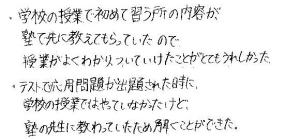 ・学校の授業で初めて習う所の内容が、
塾で先に教えてもらっていたので
授業がよくわかり、ついていけたことがとてもうれしかった。
・テストで応用問題が出題された時に、
学校の授業ではやっていなかったけど、
塾の先生に教わっていたため解くことができた。